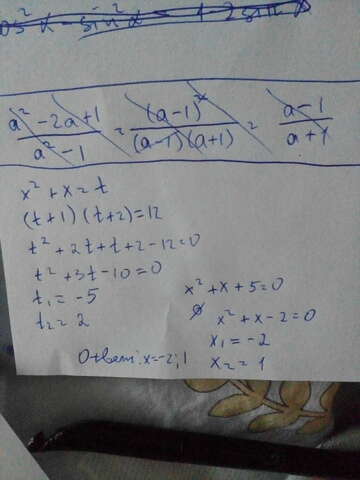 cos²α - sin²α = + 2 sin α
a² - 2a + 1 / a² - 1 = (a-1)² / (a-1)(a+1) = a-1 / a+1
x² + x = t
(t+1)(t+2)=12
t² + 2t + t + 2 - 12 = 0
t² + 3t - 10 = 0
t₁ = -5
t₂ = 2
x² + x + 5 = 0
∅ x² + x - 2 = 0
x₁ = -2
x₂ = 1
Ответ: x = -2; 1